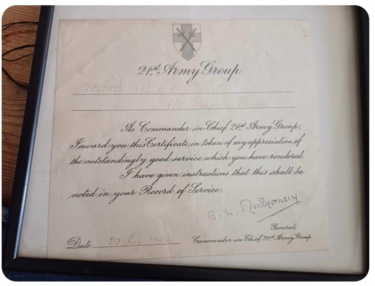 21st Army Group.
As Commander-in-Chief, 21st Army Group,
I award you this Certificate in token of my appreciation of
the outstandingly good service which you have rendered
I have given instructions that this shall be
noted in your Record of Service.
B. L. Montgomery
General,
Date
Commander-in-Chief, 21st Army Group